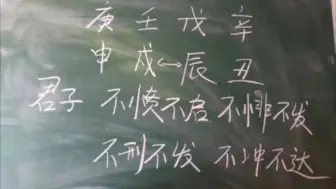 庚 壬 戊 辛
申 戌↔辰 丑
君子 不愤不启 不悱不发
不刑不发 不冲不达